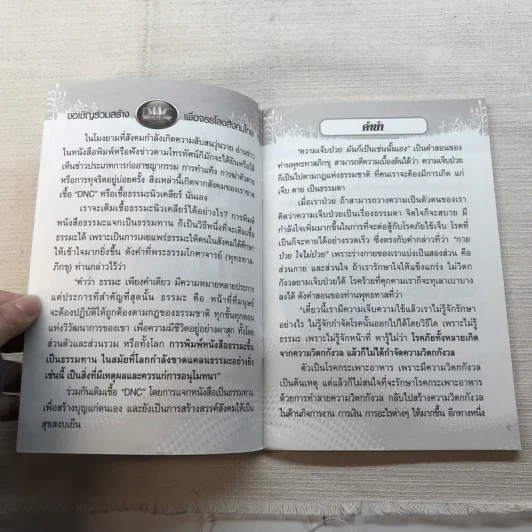 ขอเชิญร่วมสร้าง DNC เพื่อจรรโลงสังคมไทย
ในโมงยามที่สังคมกำลังเกิดความสับสนวุ่นวาย อ่านข่าว
ในหนังสือพิมพ์หรือฟังข่าวตามโทรทัศน์ก็มักจะได้ยินหรือได้
เห็นข่าวประเภทการก่ออาชญากรรม การทำแท้ง การฆ่าตัวตาย
หรือการทุจริตอยู่บ่อยครั้ง สิ่งเหล่านี้เกิดจากสังคมของเราขาด
เชื้อ "DNC" หรือเชื้อธรรมะนิวเคลียร์ นั่นเอง
เราจะเติมเชื้อธรรมะนิวเคลียร์ได้อย่างไร? การพิมพ์
หนังสือธรรมะแจกเป็นธรรมทาน ก็เป็นวิธีหนึ่งที่จะเติมเชื้อ
ธรรมะได้ เพราะเป็นการเผยแพร่ธรรมะให้คนในสังคมได้ศึกษา
ให้เข้าใจมากยิ่งขึ้น ดังคำที่พระธรรมโกศาจารย์ (พุทธทาส-
ภิกขุ) ท่านกล่าวไว้ว่า
"คำว่า ธรรมะ เพียงคำเดียว มีความหมายหลายประการ
แต่ประการที่สำคัญที่สุดนั้น ธรรมะ คือ หน้าที่ที่มนุษย์
จะต้องปฏิบัติให้ถูกต้องตามกฎของธรรมชาติ ทุกขั้นทุกตอน
แห่งวิวัฒนาการของเขา เพื่อความมีชีวิตอยู่อย่างผาสุก ทั้งโดย
ส่วนตัวและส่วนรวม หรือทั้งโลก การพิมพ์หนังสือธรรมะขึ้น
เป็นธรรมทาน ในสมัยที่โลกกำลังขาดแคลนธรรมะอย่างยิ่ง
เช่นนี้ เป็นสิ่งที่มีเหตุผลและควรแก่การอนุโมทนา"
ร่วมกันเติมเชื้อ "DNC" โดยการแจกหนังสือเป็นธรรมทาน
เพื่อสร้างบุญแก่ตนเอง และยังเป็นการสร้างสรรค์สังคมให้เป็น
สุขสงบเย็น
คำนำ
"ความเจ็บป่วย มันก็เป็นเช่นนั้นเอง" เป็นคำสอนของ
ท่านพุทธทาสภิกขุ สามารถตีความเบื้องต้นได้ว่า ความเจ็บป่วย
ก็เป็นไปตามกฎแห่งธรรมชาติ ที่คนเราจะต้องมีการเกิด แก่
เจ็บ ตาย เป็นธรรมดา
เมื่อเราป่วย ถ้าสามารถวางความเป็นตัวตนของเรา
คิดว่าความเจ็บป่วยเป็นเรื่องธรรมดา จิตใจก็จะสบาย มี
กำลังใจเพิ่มมากขึ้นในการที่จะต่อสู้กับโรคภัยไข้เจ็บ โรคที่
เป็นก็จะหายได้อย่างรวดเร็ว ซึ่งตรงกับคำกล่าวที่ว่า "กาย
ป่วย ใจไม่ป่วย" เพราะร่างกายของเราแบ่งเป็นสองส่วน คือ
ส่วนกาย และส่วนใจ ถ้าเรารักษาใจให้แข็งแกร่ง ไม่วิตก
กังวลยามเจ็บป่วยได้ โรคร้ายที่คุกคามเราก็จะทุเลาเบาบาง
ลงได้ ดังคำสอนของท่านพุทธทาสที่ว่า
"เดี๋ยวนี้เรามีความเจ็บความไข้แล้วเราไม่รู้จักรักษา
อย่างไร ไม่รู้จักกำจัดโรคนั้นออกไปได้โดยวิธีใด เพราะไม่รู้
ธรรมะ เพราะไม่รู้จักหน้าที่ หารู้ไม่ว่า โรคภัยทั้งหลายเกิด
จากความวิตกกังวล แล้วก็ไม่ได้กำจัดความวิตกกังวล
ตัวเป็นโรคกระเพาะอาหาร เพราะมีความวิตกกังวล
เป็นต้นเหตุ แต่แล้วก็ไม่สนใจที่จะรักษาโรคกระเพาะอาหาร
ด้วยการทำลายความวิตกกังวล กลับไปสร้างความวิตกกังวล
ในด้านกิจการงาน การเงิน การอะไรต่างๆ ให้มากขึ้น อีกทางหนึ่ง